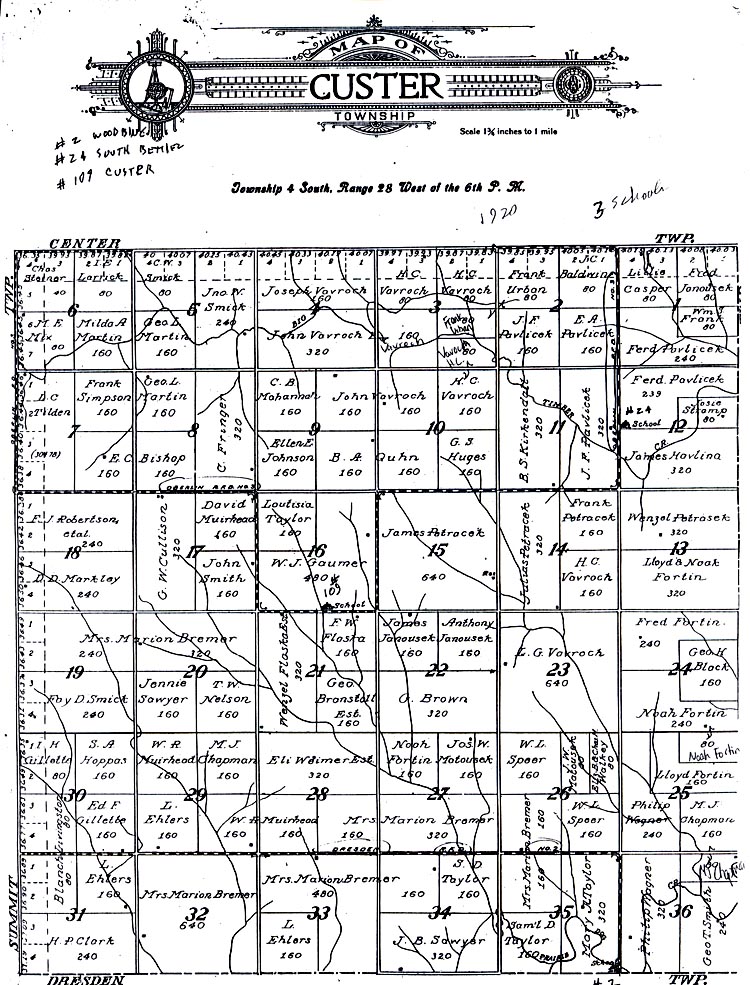 MAP OF
CUSTER
TOWNSHIP
Scale 1¾ inches to 1 mile
# 2 WOODBINE
# 24 SOUTH BEMIER
# 109 CUSTER
Township 4 South, Range 28 West of the 6th P. M.
1920
3 Schools
CENTER
TWP.
TWP.
Chas Steiner 40
Lorrick 80
C.W. Smick 80
Jno. W. Smick 240
Joseph Vavroch 160
H.C. Vavroch 80
H.C. Vavroch 80
Frank Urban 80
J.C. Baldwin 80
Lillie Casper 80
Fred Janousek 80
6 5 4 3 2 1
M.E. Mix 80
Milda A Martin 160
Geo. L. Martin 160
John Vavroch 320
Vavroch 160
Frank Urban
Vavroch H.C.
J.F. Pavlicek 160
E.A. Pavlicek 160
Wm. Frank 80
Ferd Pavlicek 240
D.C. Tilden
Frank Simpson 160
Geo. L. Martin 160
C. Fringer 320
C.B. Mohannah 160
John Vavroch 160
H.C. Vavroch 160
B.S. Kirkendall 320
TIMBER
J.F. Pavlicek 320
Ferd. Pavlicek 239
#24
School
Josie Stramp 80
7 8 9 10 11 12
E.C. Bishop
160 160
Ellen E Johnson 160
B.A. Guhn
160 160
G.S. Huges 160
CR
James Havlina 320
OBERLIN R.R.D. NO. 3
F.J. Robertson, etal. 240
G.W. Cullison 320
David Muirhead 160
Loutisia Taylor 160
James Petracek 640
Julias Petracek 320
Frank Petracek 160
Wenzel Petrasek 320
18 17 16 15 14 13
D.D. Markley 240
John Smith 160
W.J. Gaumer 480
# 109
School
H.C. Vavroch 160
Lloyd & Noah Fortin 320
Mrs. Marion Bremer
240 320
Wenzel Flaska Est 320
F.W. Flaska 160
James Janousek 160
Anthony Janousek 160
L.G. Vavroch 640
Fred Fortin 240
Geo. H Black 160
19 20 21 22 23 24
Foy D. Smick 240
Jennie Sawyer 160
T.W. Nelson 160
Geo Bronstall Est. 160
O. Brown 320
Noah Fortin 240
I H Gillette 80
S.A Hoppas 160
W.R Muirhead 160
M.J. Chapman 160
Eli Weimer Est 320
Noah Fortin 160
Jos. W. Matousek 160
W.L. Speer 160
J.W. Matousek 80
80
Noah Fortin
Lloyd Fortin 160
30 29 28 27 26 25
Blanch Livingston 80
Ed F Gillette 160
L. Ehlers 160
W.R Muirhead
160 160
Mrs Marion Bremer 320
Mrs. Marion Bremer
160 160
W.L. Speer 160
Philip Wagner 240
M.J. Chapman 160
DRESDEN R.R.D. NO. 2
L. Ehlers 160
Mrs. Marion Bremer 640
Mrs. Marion Bremer 480
160
S.D Taylor 160
Mary A. Taylor 320
Philip Wagner 320
CR
Geo T. Smith 240
31 32 33 34 35 36
H.P. Clark 240
L. Ehlers 160
J.B. Sawyer
160 160
Sam'l D. Taylor 160
PRAIRIE
School
# 2
SUMMIT
DRESDEN
TWP.